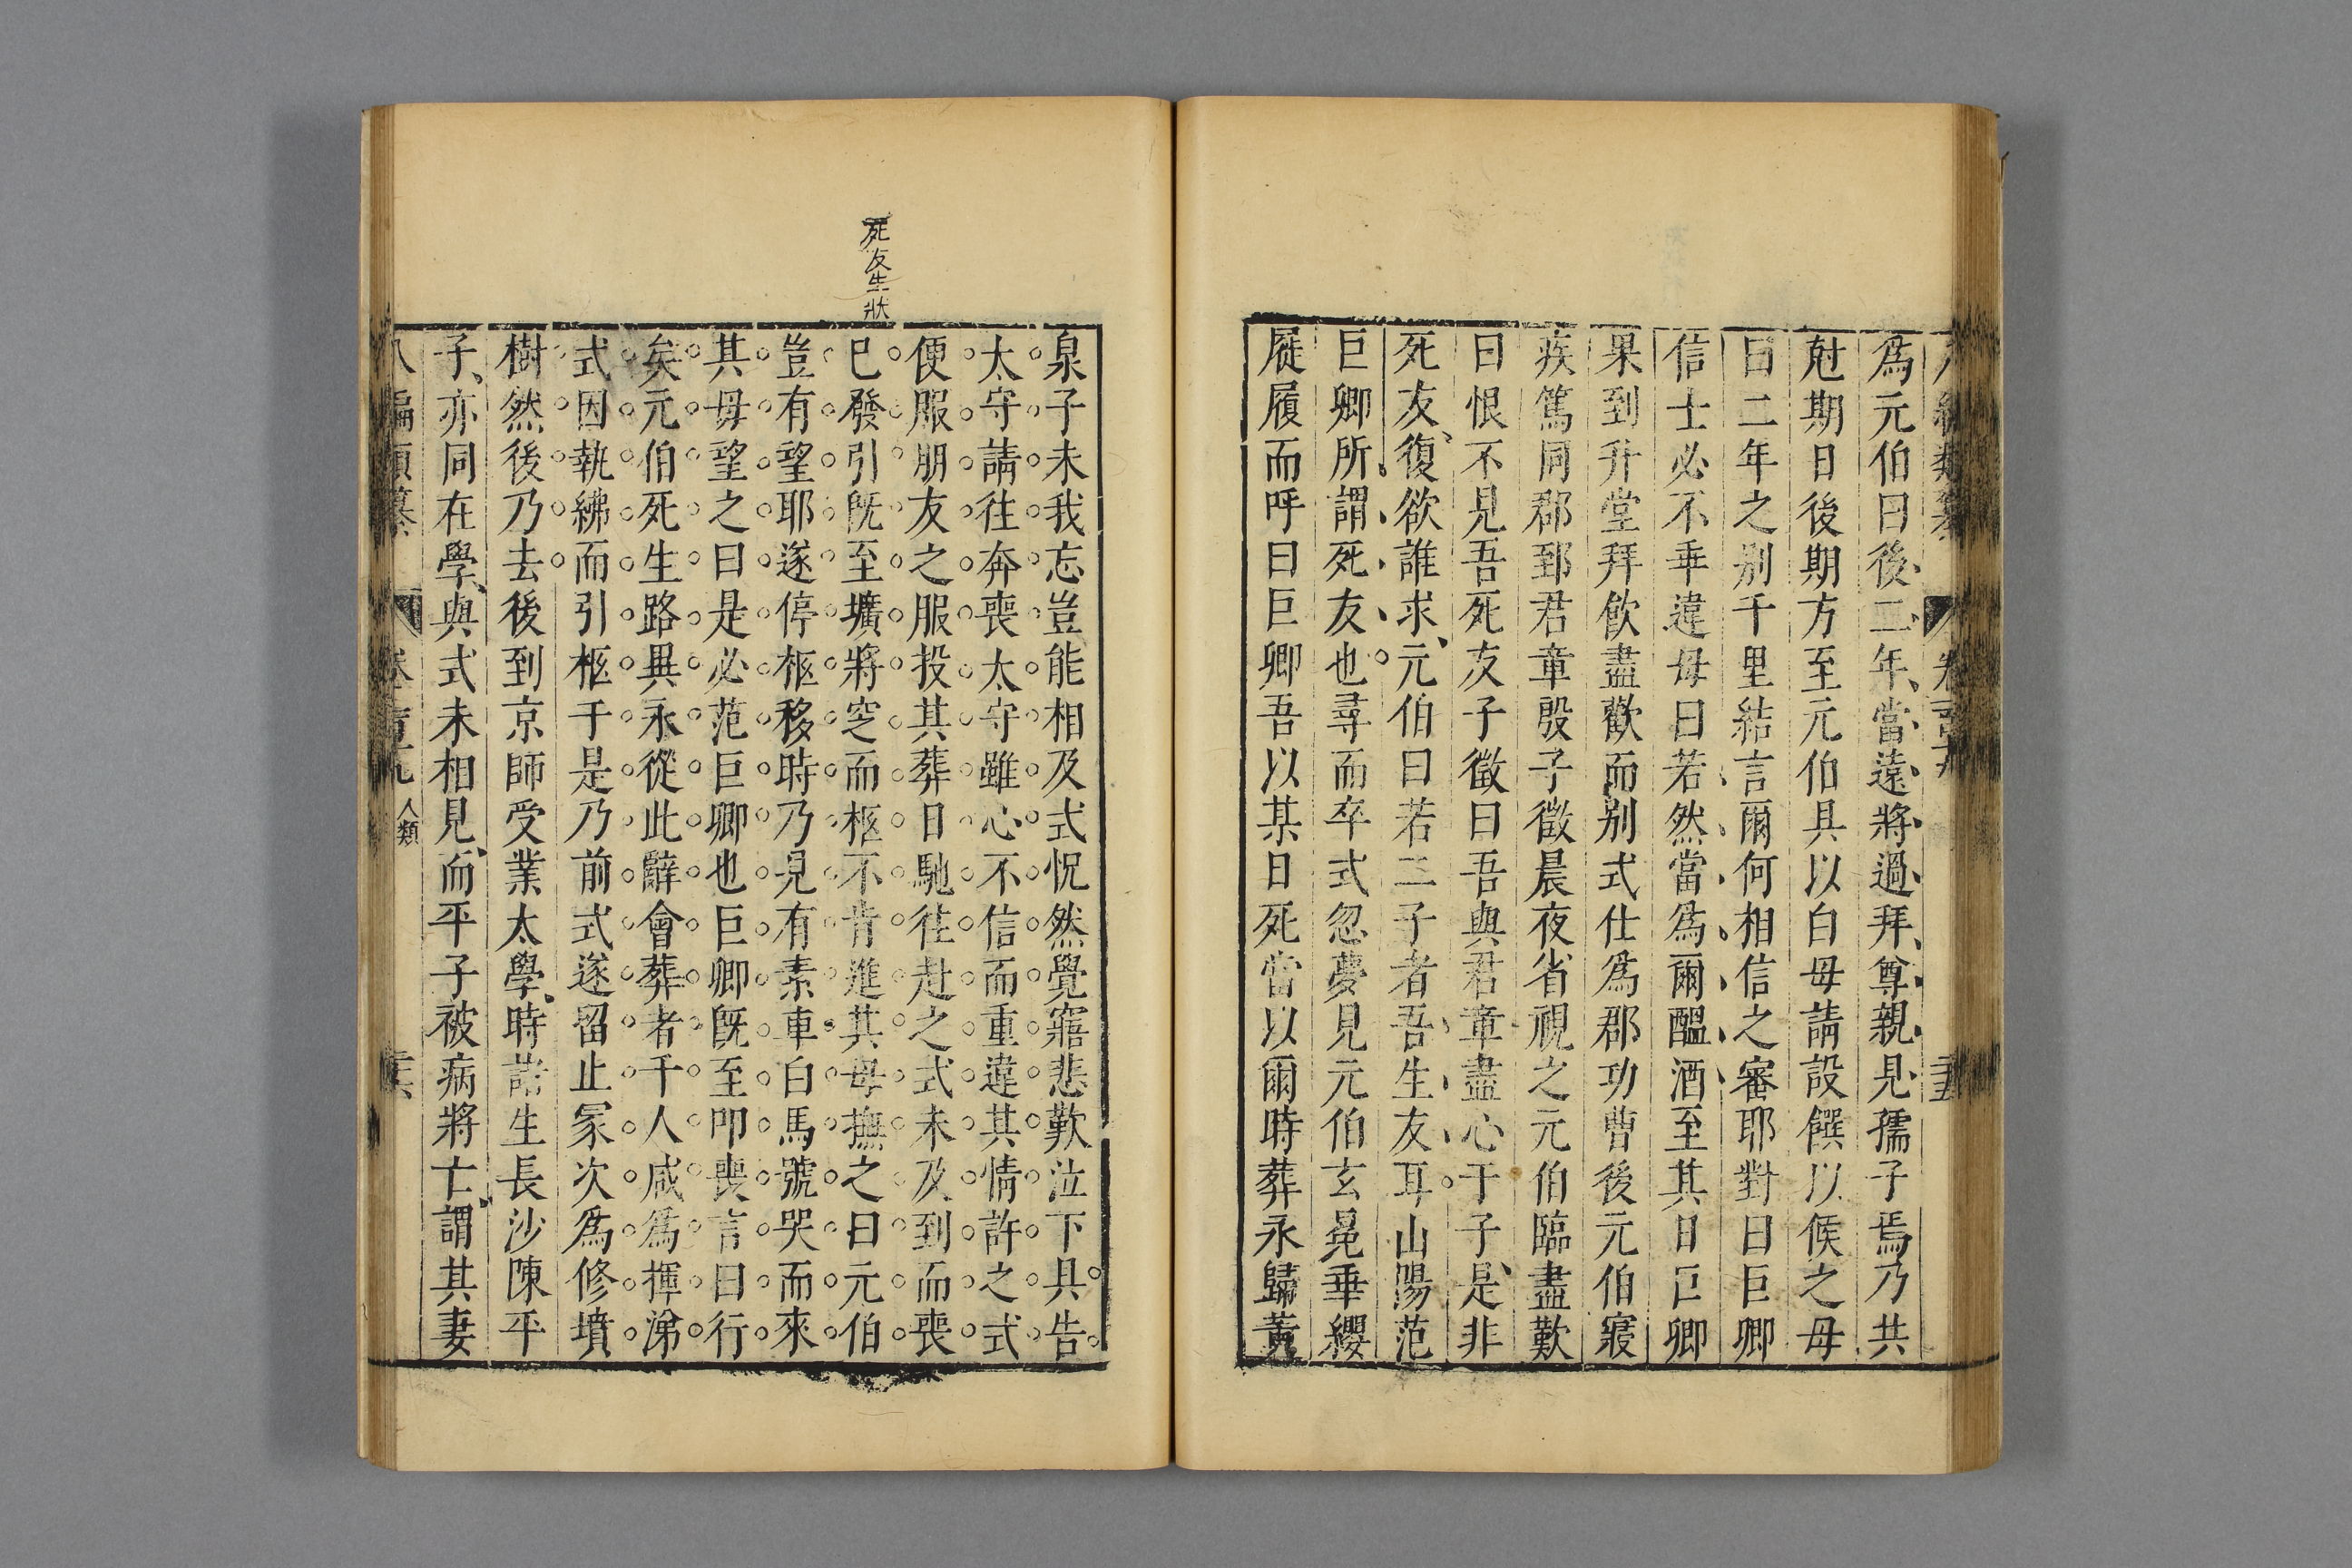 爲元伯曰後二年當遠將過拜尊親見孺子焉乃共
尅期日後期方至元伯具以白母請設饌以候之母
曰二年之别千里結言爾何相信之審耶對曰巨卿
信士必不乖違母曰若然當爲爾醞酒至其日巨卿
果到升堂拜飲盡歡而别式仕爲郡功曹後元伯寢
疾篤同郡郅君章殷子徵晨夜省視之元伯臨盡歎
曰恨不見吾死友子徵曰吾與君章盡心于子是非
死友復欲誰求元伯曰若二子者吾生友耳山陽范
巨卿所謂死友也尋而卒式忽夢見元伯玄冕乖纓
屣履而呼曰巨卿吾以某日死當以爾時葬永歸黃
死友生狀
泉子未我忘豈能相及式怳然覺寤悲歎泣下具告
太守請往奔喪太守雖心不信而重違其情許之式
便服朋友之服投其葬日馳往赴之式未及到而喪
已發引既至壙將窆而柩不肯進其母撫之曰元伯
豈有望耶遂停柩移時乃見有素車白馬號哭而來
其母望之曰是必范巨卿也巨卿既至叩喪言曰行
矣元伯死生路異永從此辭會葬者千人咸爲揮涕
式因執紼而引柩于是乃前式遂留止冢次爲修墳
樹然後乃去後到京師受業太學時諸生長沙陳平
子亦同在學與式未相見而平子被病將亡謂其妻
八編類纂 人類